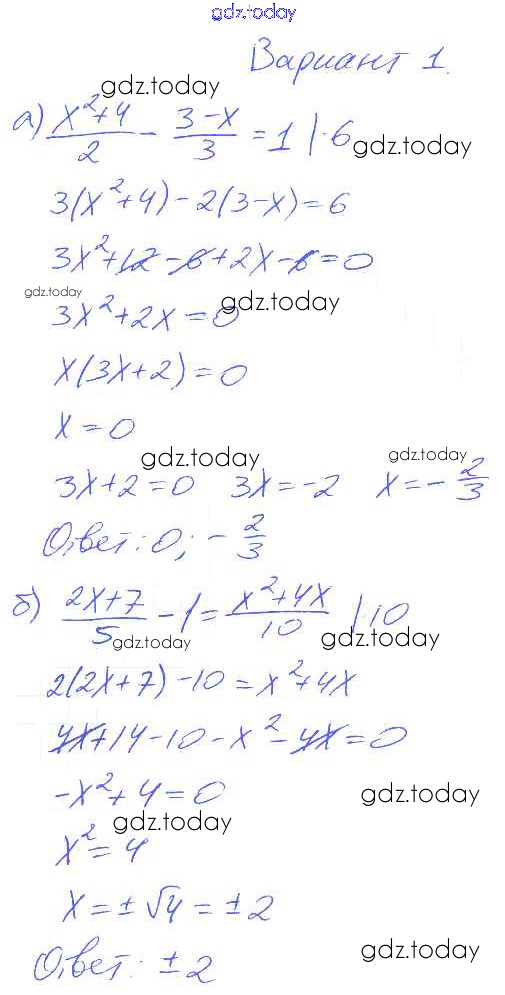 gdz.today
Вариант 1.
gdz.today
а) (x²+4)/2 - (3-x)/3 = 1 |·6 gdz.today
3(x²+4)-2(3-x)=6
3x²+12-6+2x-6=0
gdz.today
3x²+2x=0 gdz.today
x(3x+2)=0
x=0
gdz.today gdz.today
3x+2=0 3x=-2 x=-2/3
Ответ: 0; -2/3
б) (2x+7)/5 - 1 = (x²+4x)/10 |·10
gdz.today gdz.today
2(2x+7)-10=x²+4x
4x+14-10-x²-4x=0
-x²+4=0 gdz.today
gdz.today
x²=4
x=±√4=±2
Ответ: ±2 gdz.today